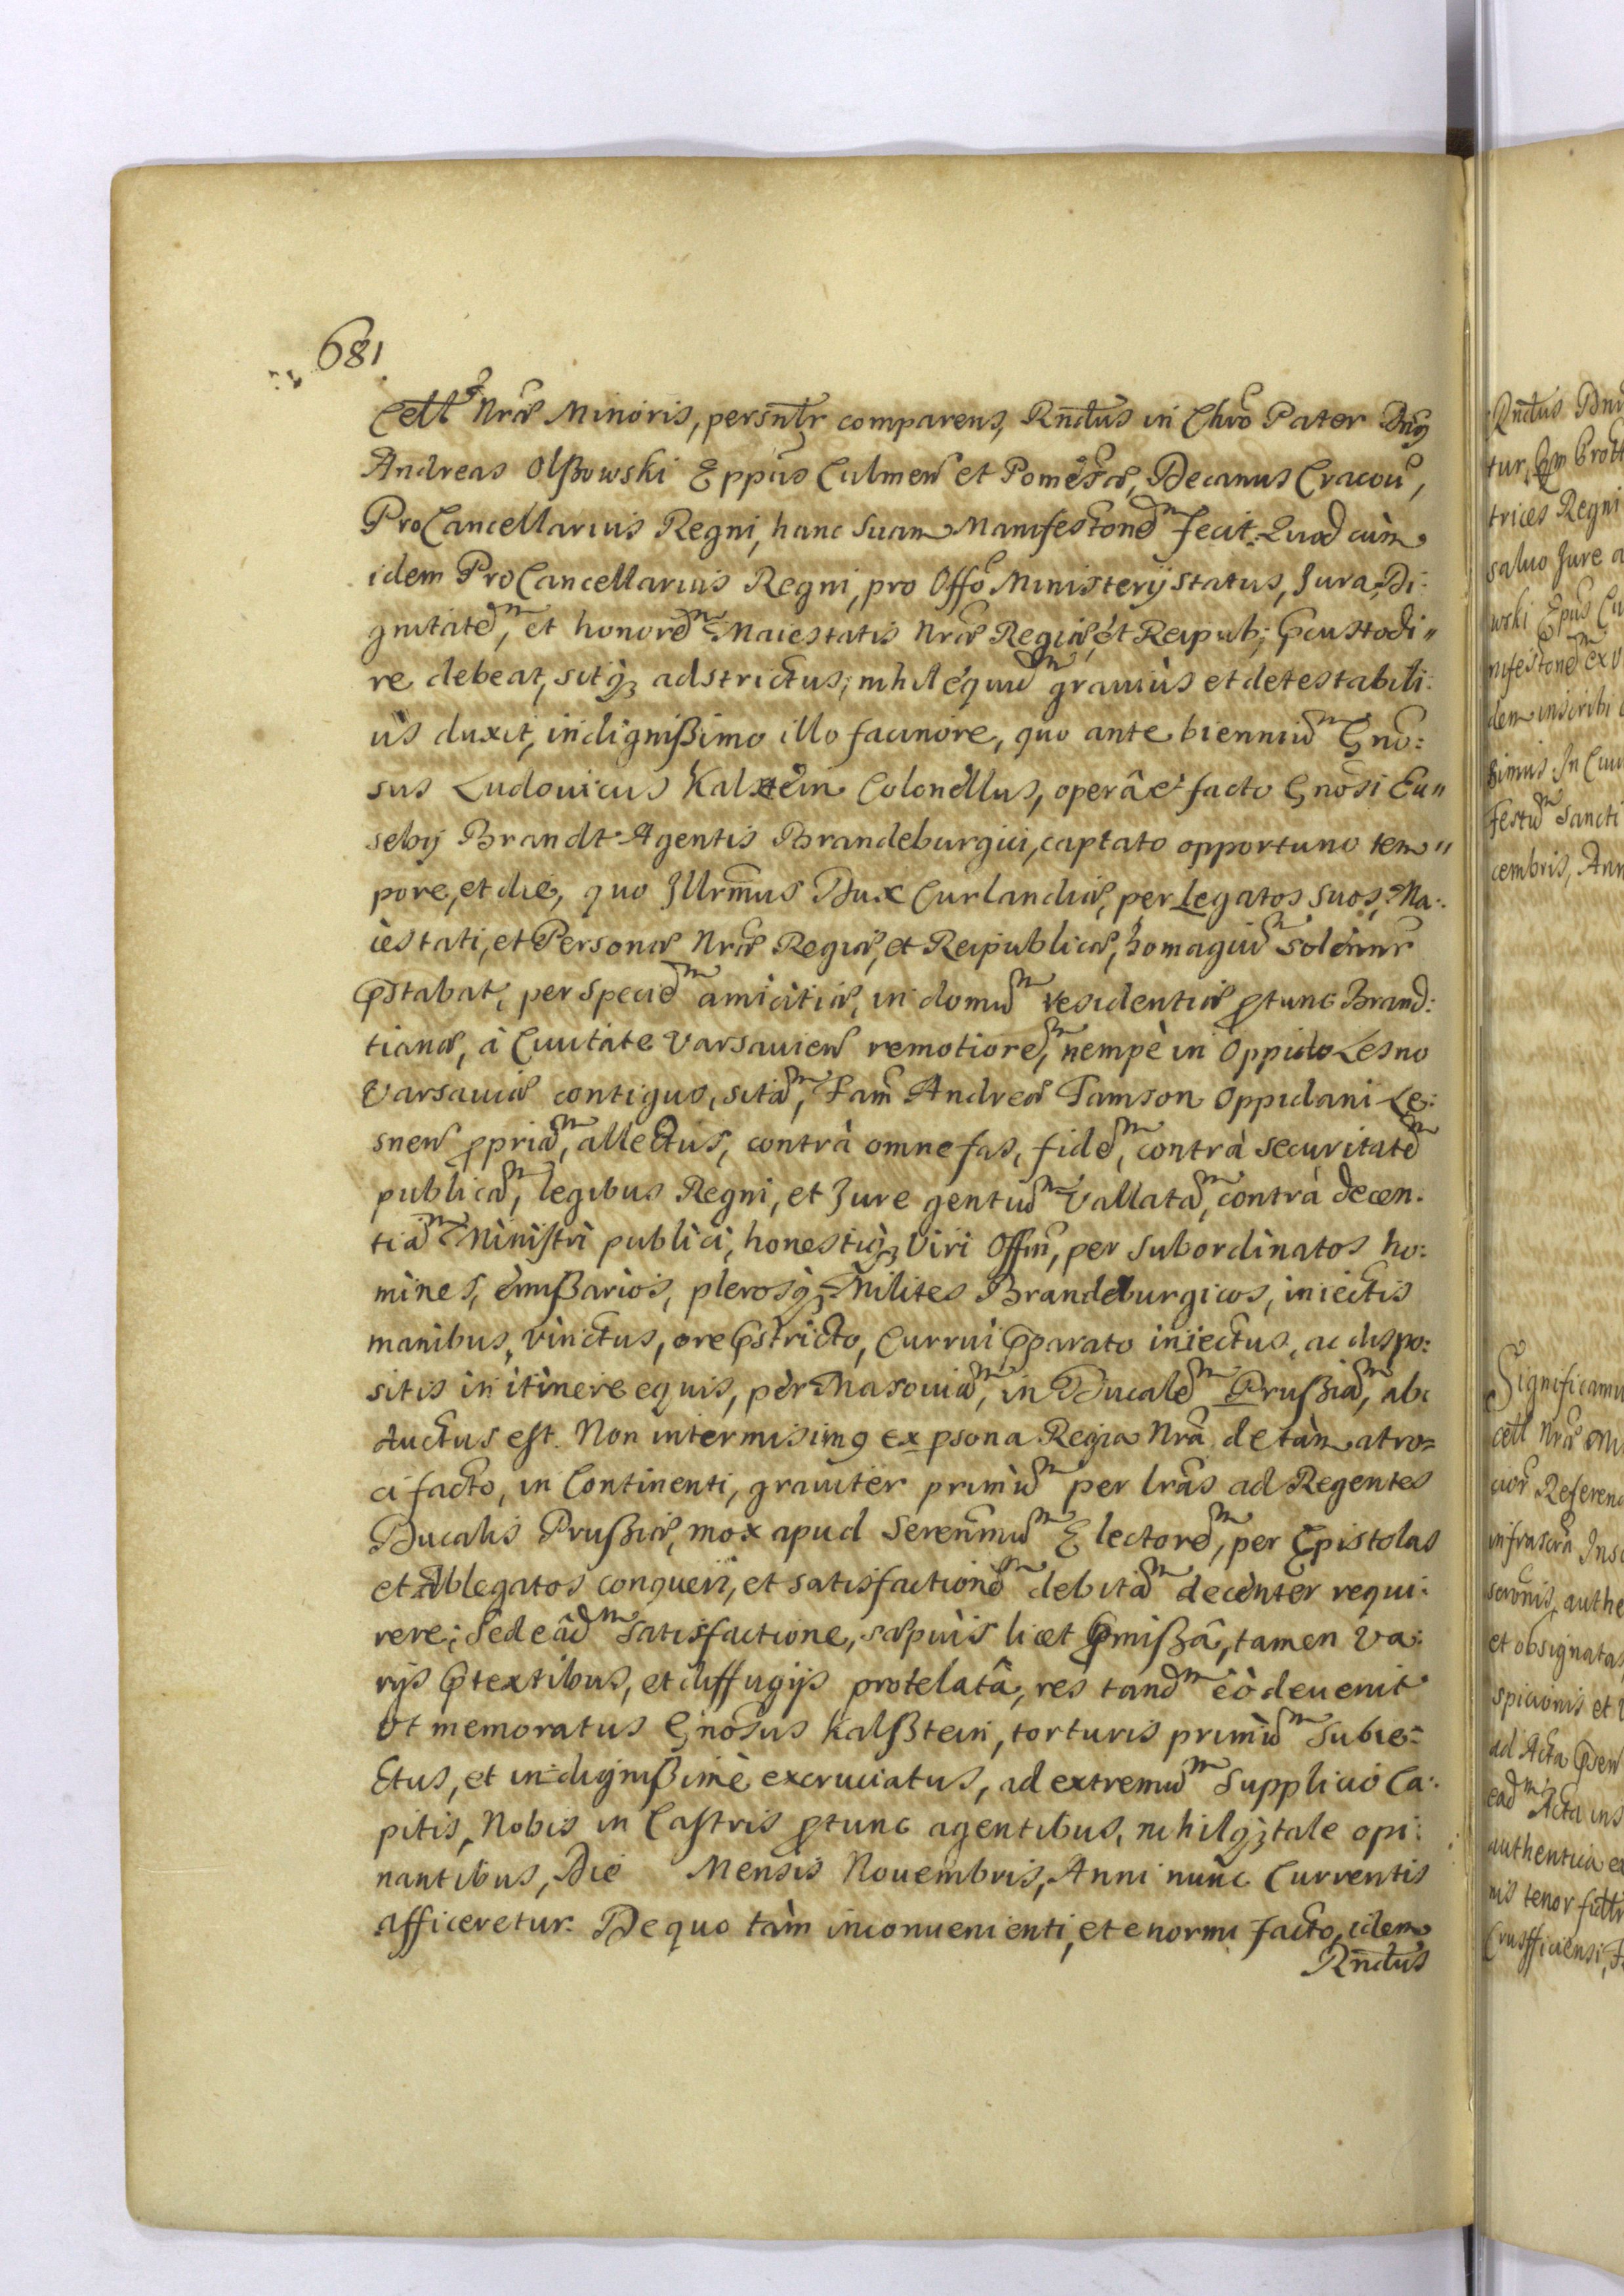 681
Cell Nræ Minoris, persnlr comparens, Rndus in Chro Pater Dnus
Andreas Olßowski Eppus Culmen et Pomeræ, Decanus Cracou,
ProCancellarius Regni, hanc suam Manifestone͂m fecit. Quod cùm
idem ProCancellarius Regni, pro Offo Ministerij status, Jura, Di:
gnitatem, et honorem Maiestatis Nræ Regiæ, et Reipub; Custodi"
re debeat, sitq; adstrictus; nihil equid grauiùs et detestabili:
ùs duxit, indignißimo illo facinore, quo ante bienniũm Gno:
sus Ludouicus Kalstein Colonellus, operâ et facto Gnosi Eu"
sebij Brandt Agentis Brandeburgici, captato opportuno tem"
pore, et die, quo Jllrmus Dux Curlandiæ, per Legatos suos, Ma:
iestati, et Personæ Nræ Regiæ, et Reipublicæ, homagiũm solenne
pstabat, per speciem amicitiæ, in domũm residentiæ ptunc Brand:
tianæ, à Ciuitate Varsauien remotiorem, nempè in Oppido Lesno
Varsauiæ contiguo, sitam, Fam Andreæ Tamson Oppidani Le:
snen ppriam, allectus, contrà omne fas, fidem, contrà securitatem
publicam, legibus Regni, et Jure gentiũm Vallatam, contrà decen:
tiam Ministri publici, honestiq; Viri Offm, per subordinatos ho:
mines, emißarios, plerosq; Milites Brandeburgicos, iniectis
manibus, vinctus, ore pstricto, Currui pparato iniectus, ac dispo:
sitis in itinere equis, pèr Masouiam, in Ducalem Prußiam, ab:
ductus est. Non intermisimq ex psona Regia Nra de tàm atro=
ci facto, in Continenti, grauiter primũm per lras ad Regentes
Ducalis Prußiæ, mox apud Serenmũm Electorem, per Epistolas
et Ablegatos conqueri, et satisfactionem debitam decenter requi:
rere; Sed eâdm satisfactione, sæpiùs licet pmißâ, tamen va:
rijs ptextibus, et diffugijs protelatâ, res tandm eò deuenit
Vt memoratus Gnosus Kalßtein, torturis primũm subie=
ctus, et indignißimè excruciatus, ad extremũm Supplicio Ca:
pitis, Nobis in Castris ptunc agentibus, nihilq; tale opi:
nantibus, Die Mensis Nouembris, Anni nunc Currentis
afficeretur. De quo tàm inconuenienti, et enormi facto, idem
Rndus
Rndus Dnu
trices Regni
saluo Jure a
wski Epus Cu
nifestonem ex v
dem inscribi
ßimus Jn Ciui
festũm Sancti
cembris, Ann
Significamu
cell Nræ Mi
cior Referen
infrascra Ins
et obsignatas
spicionis et
ad Acta psen
eadm Acta ins
authentica e
nis tenor